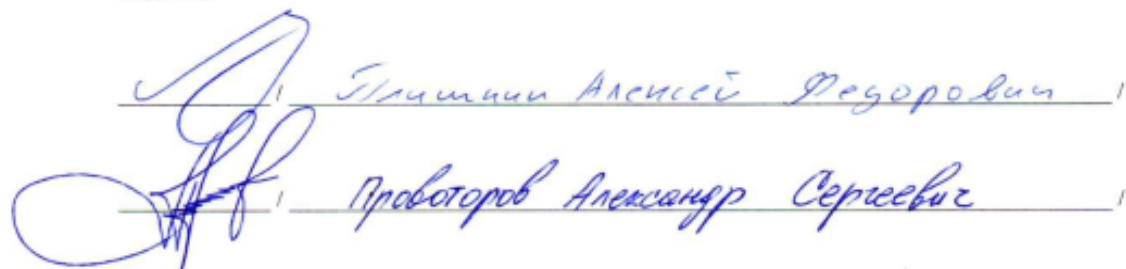 / Плишкин Алексей Федорович /
/ Провоторов Александр Сергеевич /